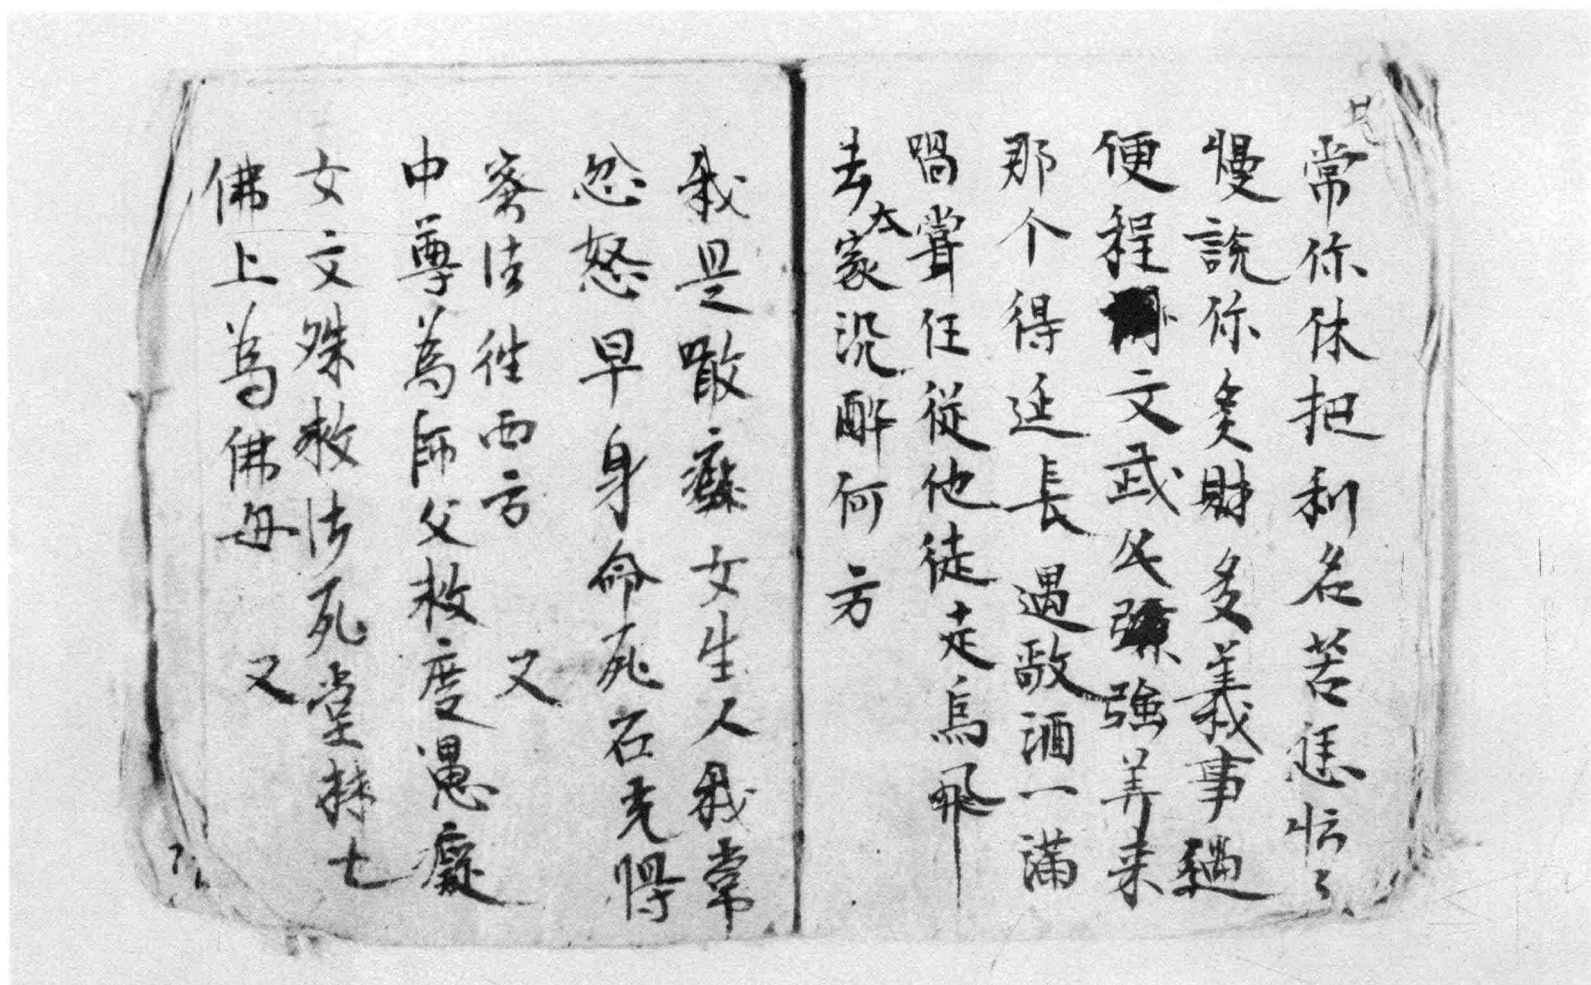 常你休把利名苦恁忙々
慢說你多財多義事過
便程文武公強美来
那个得延長遇敵酒一滿
喎嘗任從他徒走烏飛
去大家沉酔何方
我是散癡女生人我常
忿怒早身命死石克得
密法徃西方 又
中尊為師父救度愚癡
女文殊救法死堂棘七
佛上為佛母 又